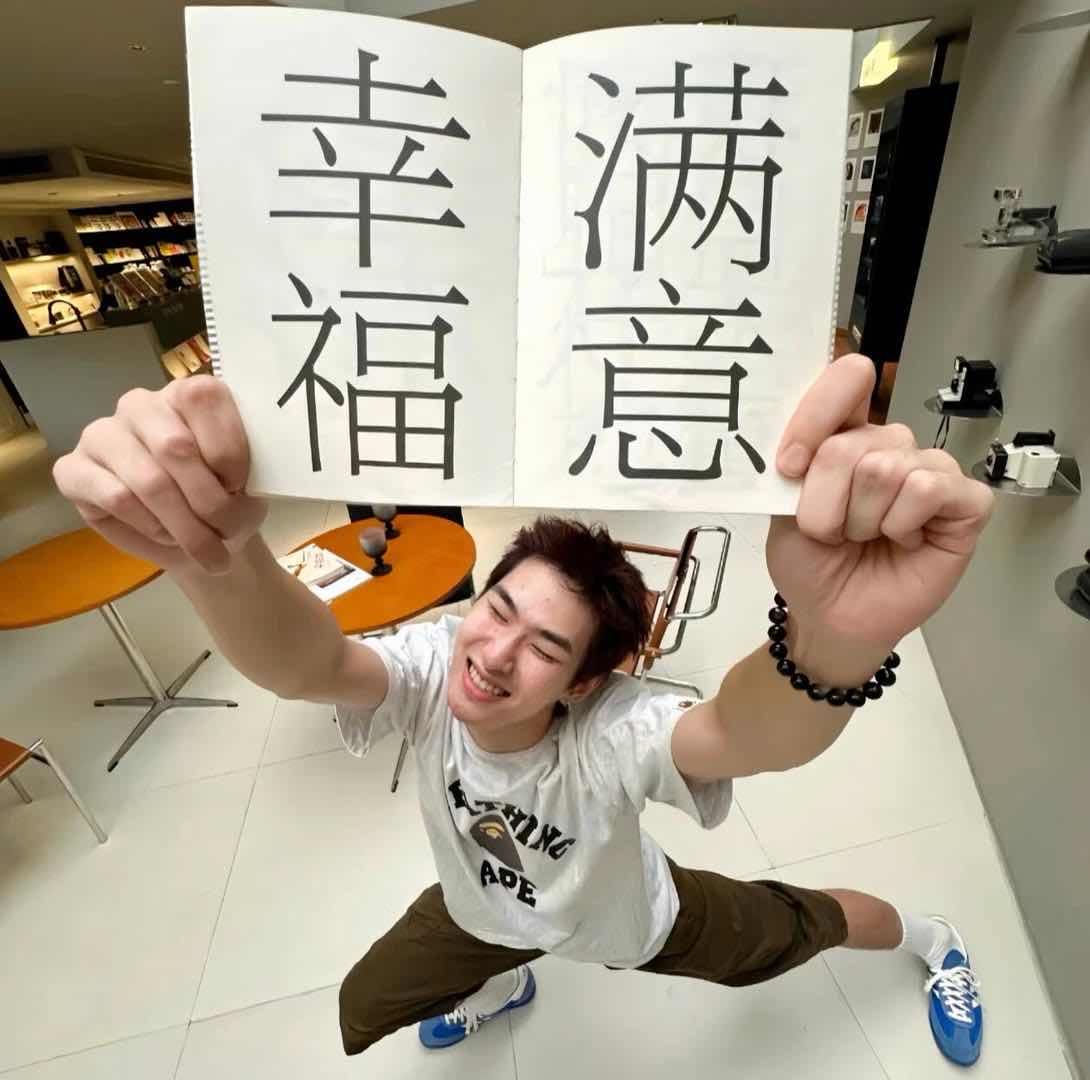 幸福
满意
A THING
APE